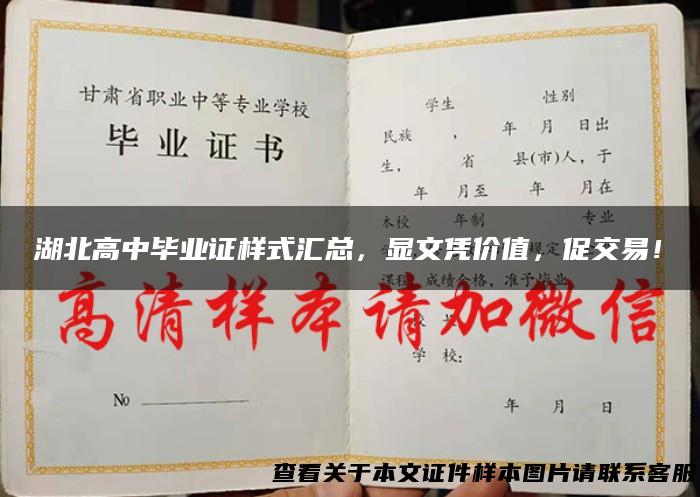 甘肃省职业中等专业学校
毕业证书
No
学生 性别
民族 ， 年 月 日出
生， 省 县(市)人，于
年 月至 年 月在
本校 年制 专业
湖北高中毕业证样式汇总，显文凭价值，促交易！
课程，成绩合格，准予毕业。
高清样本请加微信
学 校：
年 月 日
查看关于本文证件样本图片请联系客服